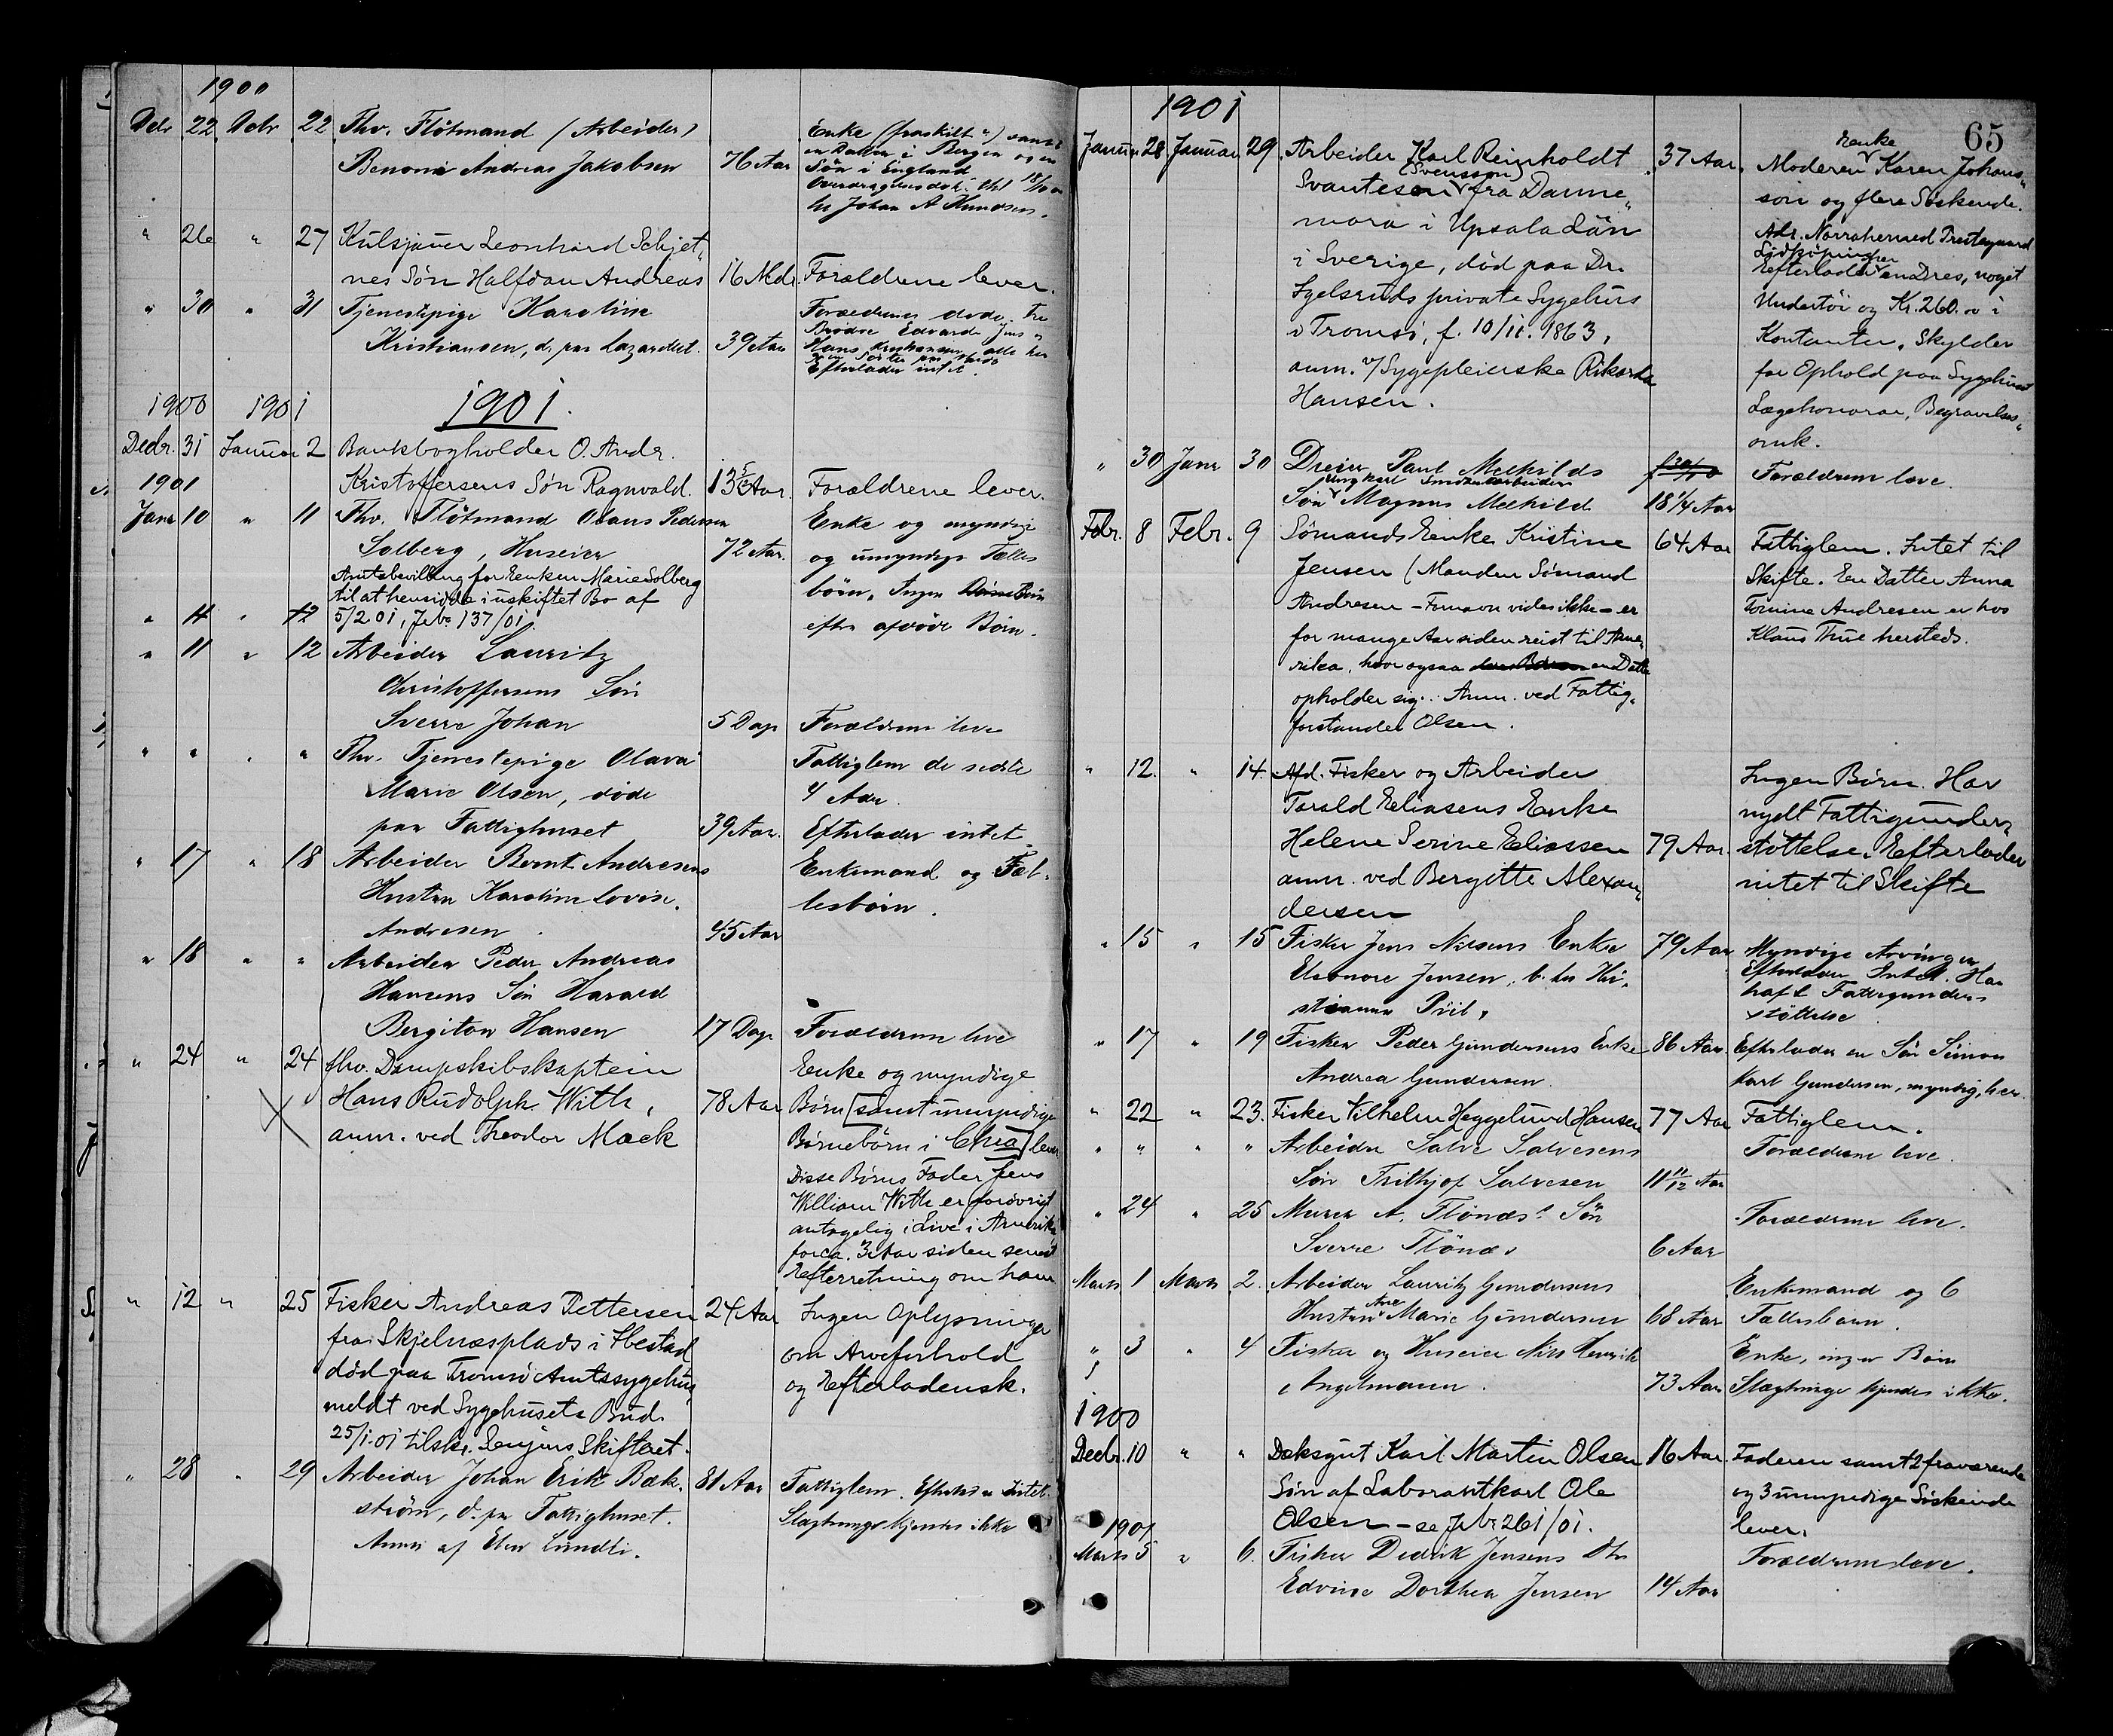 1900
Decbr 22 Decbr 22 Fhv. Flötmand (Arbeider)
Benoni Andreas Jakobsen 76 Aar
Enke (fraskilt) samt
en Datter i Bergen og en
Søn i England
Johan A Knudsen.
" 26 " 27 Kulsjauer Leonhard Schjet„
nes Søn Halfdan Andreas 16 Mdr. Forældrene lever.
" 30 " 31 Tjenestepige Karoline
Kristiansen, d. paa Lazarettet. 39 Aar
Forældrene døde. Tre
Brødre Edvard Jens og
Hans Kristiansen alle her
Efterlader intet.
1900 1901 1901.
Decbr. 31 Januar 2 Bankbogholder O. Andr.
Kristoffersens Søn Ragnvald. 13 5/12 Aar. Forældrene lever.
1901
Janr 10 " 11 Fhv. Flötmand Olaus Pedersen
Solberg, Huseier 72 Aar.
Amtsbevilling for Enken Marie Solberg
til at hensidde i uskiftet Bo af
5/2 01, Jr. No. 137/01.
Enke og myndige
og umyndige Fælles
børn. Ingen
efter afdöde Børn.
" 11 " 12
" 11 " 12 Arbeider Lauritz
Christoffersens Søn
Sverre Johan 5 Dage Forældrene leve
" " " " Fhv. Tjenestepige Olava
Marie Olsen, döde
paa Fattighuset 39 Aar.
Fattiglem de sidste
4 Aar.
Efterlader intet.
" 17 " 18 Arbeider Bernt Andresens
Hustru Karoline Lovise
Andresen. 45 Aar
Enkemand og Fæl-
lesbörn.
" 18 " " Arbeider Peder Andreas
Hansens Søn Harald
Bergiton Hansen 17 Dage Forældrene leve
" 24 " 24 fhv. Dampskibskaptein
Hans Rudolph With, 78 Aar
anm. ved Theodor Mack
Enke og myndige
Børn [samt umyndige
Børnebörn i Chra] lever
Disse Børns Fader Jens
William With er forövrigt
antagelig i Live i Amerika
for ca. 3 Aar siden senest
Efterretning om ham
" 12 " 25 Fisker Andreas Pettersen 24 Aar
fra Skjelnesplads i Ibestad
död paa Tromsö Amtssygehus
meldt ved Sygehusets Bud.
25/1.01 tilskr. Senjens Skifteret.
Ingen Oplysninger
om Arveforhold
og Efterladensk.
" 28 " 29 Arbeider Johan Erik Bæk-
ström, d. paa Fattighuset. 81 Aar
Anm. af Elen Lundli.
Fattiglem. Efterlader Intet.
Slægtninge kjendes ikke
1901 65
Januar 28 Januar 29. Arbeider Karl Reinholdt 37 Aar.
(Svensson)
Svantesen fra Danne„
mora i Upsala Län
i Sverige, död paa Dr.
Egelsruds private Sygehus
i Tromsö, f. 10/11. 1863,
anm. v/ Sygepleierske Rikarda
Hansen.
Enke
Moderen Karen Johans„
son og flere Söskende.
Adr. Norrahemaed Prestegaard
Lidköping
Efterlader en Dres, noget
Undertöi og Kr. 260.00 i
Kontanter. Skylder
for Ophold paa Sygehuset
Lægehonorar, Begravelses„
omk.
" 30 Janr 30 Dreier Paul Melhilds
Ungkarl Smedearbeider
Søn Magnus Melhild 18 1/4 Aar Forældrene leve.
Febr. 8 Febr. 9 Sømands Enke Kristine 64 Aar
Jensen (Manden Sömand
Andresen – Fornavn vides ikke – er
for mange Aar siden reist til Ame„
rika, hvor ogsaa en Datter
opholder sig. Anm. ved Fattig„
forstander Olsen.
Fattiglem. Intet til
Skifte. En Datter Anna
Tomine Andresen er hos
Klaus Thue hersteds.
" 12. " 14. Afd. Fisker og Arbeider
Torald Eliasens Enke
Helene Serine Eliassen 79 Aar.
anm. ved Bergitte Alexan„
dersen
Ingen Börn. Har
nydt Fattigunder„
støttelse. Efterlader
intet til Skifte
" 15 " 15 Fisker Jens Nilsens Enke 79 Aar
Eleonore Jensen, b. hos Kri-
stianna Priil.
Myndige Arvinger
Efterlader Intet. Har
haft Fattigunder-
støttelse
" 17 " 19 Fisker Peder Gundersens Enke 86 Aar.
Andrea Gundersen.
Efterlader en Søn Simon
Karl Gundersen, myndig, her.
" 22 " 23. Fisker Vilhelm Heggelund Hansen 77 Aar Fattiglem.
" " " " Arbeider Salve Salvesens
Søn Frithjof Salvesen 11 11/12 Aar Forældrene leve.
" 24 " 25 Murer A. Flönæs' Søn
Sverre Flönæs 6 Aar Forældrene leve.
Marts 1 Marts 2. Arbeider Lauritz Gundersens
Hustru Ane Marie Gundersen 68 Aar
Enkemand og 6
Fællesbørn.
" 3 " 4 Fisker og Huseier Nils Henrik
Angelmann. 73 Aar
Enke, ingen Børn
Slægtninge kjendes ikke.
1900
Decbr. 10 " " Dæksgut Karl Martin Olsen 16 Aar
Søn af Laborantkarl Ole
Olsen – se Jr. No. 261/01.
Faderen samt 2 fraværende
og 3 umyndige Söskende
lever.
1901
Marts 5 " 6. Fisker Didrik Jensens Dtr
Edvine Dorthea Jensen 14 Aar Forældrene leve.